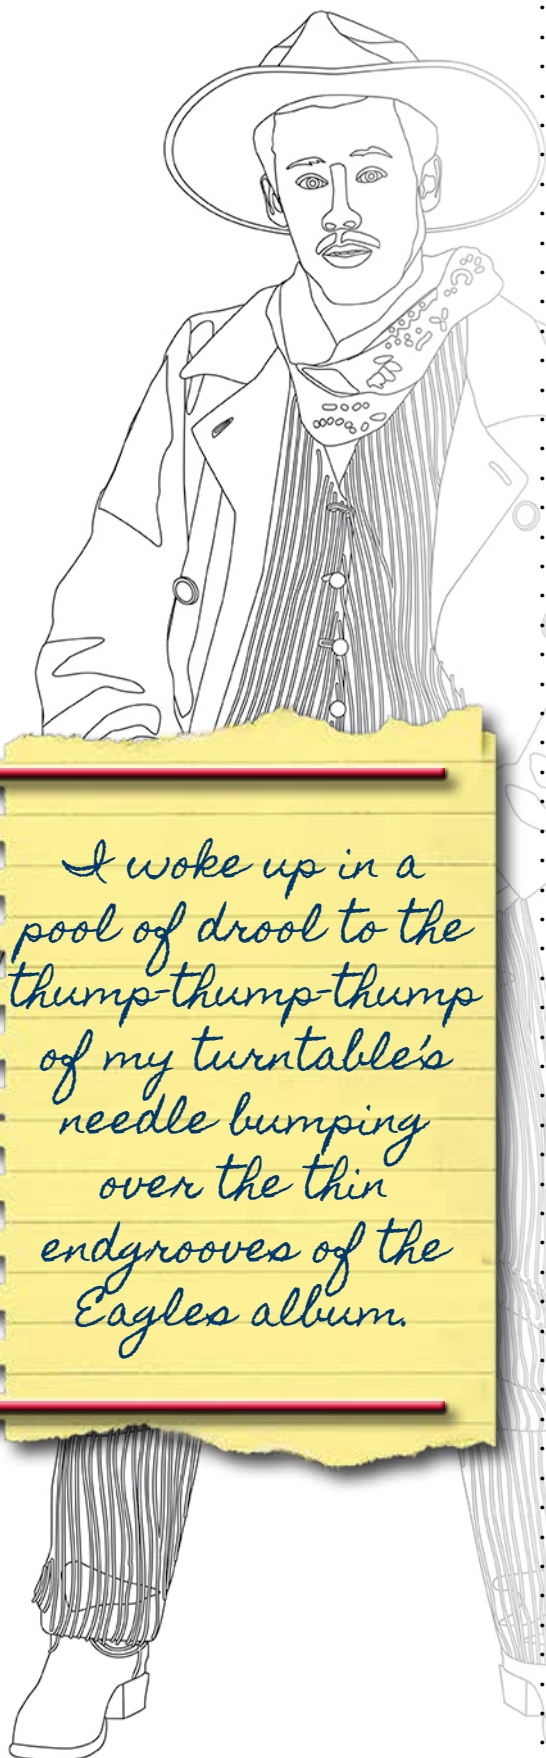 I woke up in a
pool of drool to the
thump-thump-thump
of my turntable's
needle bumping
over the thin
endgrooves of the
Eagles album.